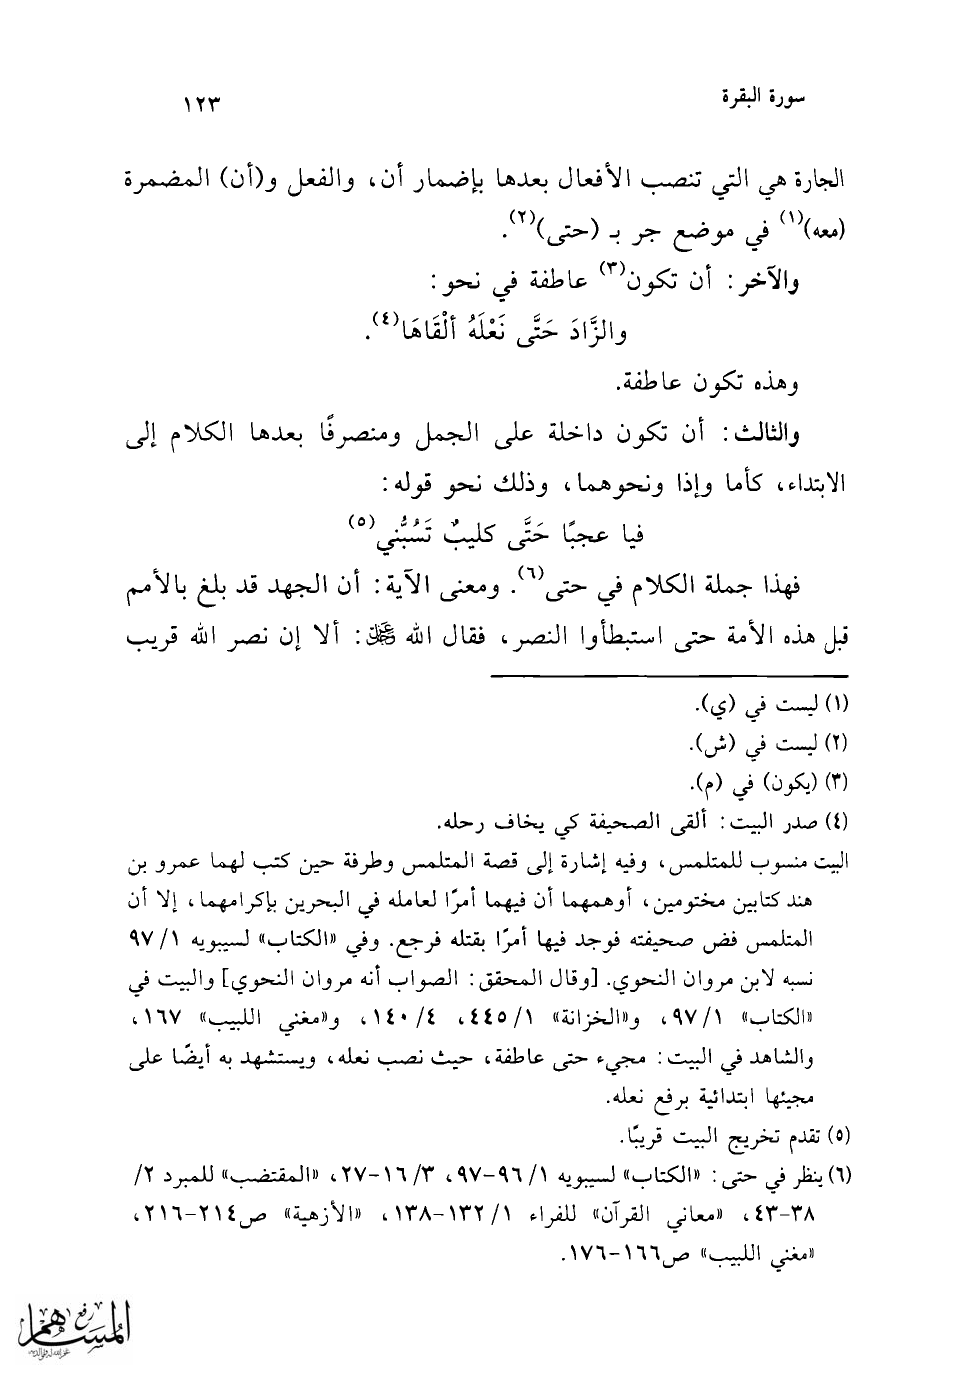 سورة البقرة
١٢٣
الجارة هي التي تنصب الأفعال بعدها بإضمار أن، والفعل و(أن) المضمرة
(معه)(١) في موضع جر بـ (حتى)(٢).
والآخر: أن تكون(٣) عاطفة في نحو:
والزَّادَ حَتَّى نَعْلَهُ ألْقَاهَا(٤).
وهذه تكون عاطفة.
والثالث: أن تكون داخلة على الجمل ومنصرفًا بعدها الكلام إلى
الابتداء، كأما وإذا ونحوهما، وذلك نحو قوله:
فيا عجبًا حَتَّى كليبٌ تَسُبُّني(٥)
فهذا جملة الكلام في حتى(٦). ومعنى الآية: أن الجهد قد بلغ بالأمم
قبل هذه الأمة حتى استبطأوا النصر، فقال الله ﷿: ألا إن نصر الله قريب
(١) ليست في (ي).
(٢) ليست في (ش).
(٣) (يكون) في (م).
(٤) صدر البيت: ألقى الصحيفة كي يخاف رحله.
البيت منسوب للمتلمس، وفيه إشارة إلى قصة المتلمس وطرفة حين كتب لهما عمرو بن
هند كتابين مختومين، أوهمهما أن فيهما أمرًا لعامله في البحرين بإكرامهما، إلا أن
المتلمس فض صحيفته فوجد فيها أمرًا بقتله فرجع. وفي «الكتاب» لسيبويه ١/ ٩٧
نسبه لابن مروان النحوي. [وقال المحقق: الصواب أنه مروان النحوي] والبيت في
«الكتاب» ١/ ٩٧، و«الخزانة» ١/ ٤٤٥، ٤/ ١٤٠، و«مغني اللبيب» ١٦٧،
والشاهد في البيت: مجيء حتى عاطفة، حيث نصب نعله، ويستشهد به أيضًا على
مجيئها ابتدائية برفع نعله.
(٥) تقدم تخريج البيت قريبًا.
(٦) ينظر في حتى: «الكتاب» لسيبويه ١/ ٩٦-٩٧، ٣/ ١٦-٢٧، «المقتضب» للمبرد ٢/
٣٨-٤٣، «معاني القرآن» للفراء ١/ ١٣٢-١٣٨، «الأزهية» ص٢١٤-٢١٦،
«مغني اللبيب» ص١٦٦-١٧٦.
رفع
المساهم